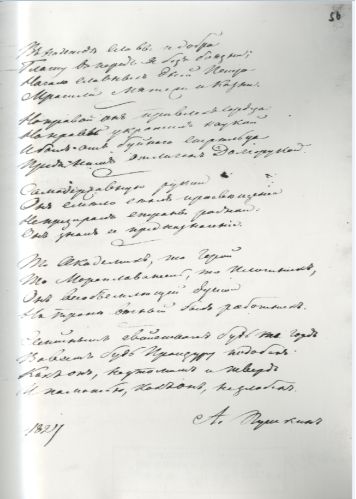 56
Въ надеждѣ славы и добра
Гляжу впередъ я безъ боязни;
Начало славныхъ дней Петра
Мрачили мятежи и казни.
Но правдой онъ привлекъ сердца
Но нравы укротилъ наукой
И былъ отъ буйнаго стрѣльца
Предъ нимъ отличенъ Долгорукой.
Самодержавною рукой
Онъ смѣло сѣялъ просвѣщенье
Не презиралъ страны родной:
Онъ зналъ предназначенье.
То Академикъ, то Герой
То Мореплаватель, то плотникъ,
Онъ всеобъемлющей душой
На тронѣ вѣчный былъ работникъ.
будь же гордъ
Во всемъ будь Пращуру подобенъ
Какъ онъ, неутомимъ и твердъ
И памятью, какъ онъ, незлобенъ.
1827
А. Пушкинъ